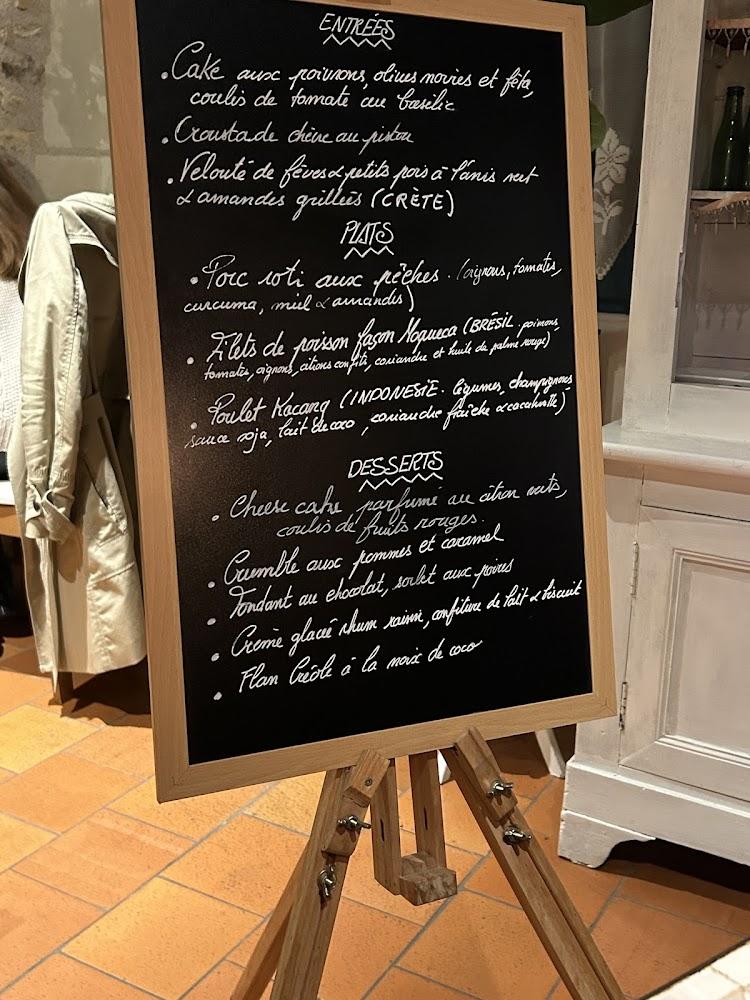 ENTRÉES
• Cake aux poivrons, olives noires et fêta,
coulis de tomate au basilic
• Croustade chèvre au pistou
• Velouté de fèves & petits pois à l'anis vert
& amandes grillées (CRÈTE)
PLATS
• Porc roti aux pêches. (oignons, tomates,
curcuma, miel & amandes)
• Filets de poisson façon Moqueca (BRÉSIL. poivrons,
tomates, oignons, citrons confits, coriandre et huile de palme rouge)
• Poulet Kacang (INDONESIE. légumes, champignons
sauce soja, lait de coco, coriandre fraîche & cacahuète)
DESSERTS
• Cheese cake parfumé au citron verts,
coulis de fruits rouges.
• Crumble aux pommes et caramel
• Fondant au chocolat, sorbet aux poires
• Crème glacée rhum raisin, confiture de lait & biscuit
• Flan Créole à la noix de coco